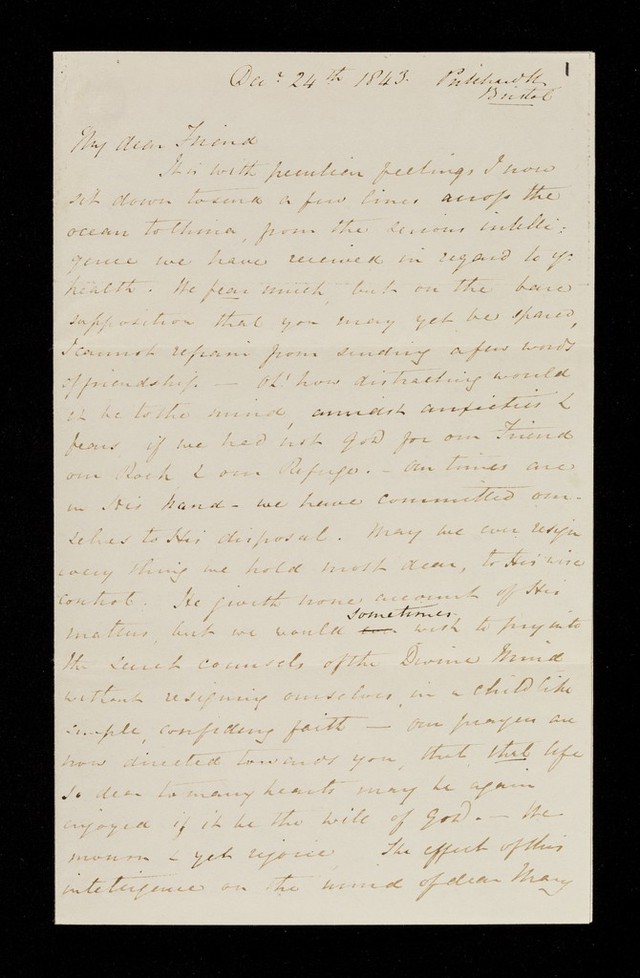 1
Decr 24th 1843.
Bristol
My dear Friend
It is with peculiar feelings I now
sit down to send a few lines across the
ocean to China, from the serious intelli-
gence we have received in regard to yr
health. We fear much, but on the bare
supposition that you may yet be spared,
I cannot refrain from sending a few words
of friendship. — Oh! how distracting would
it be to the mind, amidst anxieties &
fears if we had not God for our Friend
our Rock & our Refuge. – Our times are
in His hand – we have committed our-
selves to His disposal. May we ever resign
every thing we hold most dear, to His wise
control. He giveth none account of His
matters, but we would sometimes wish to pry into
the secret counsels of the Divine Mind
without resigning ourselves, in a childlike
simple, confiding faith — Our prayers are
now directed towards you, that that life
so dear to many hearts may be again
enjoyed if it be the will of God. — We
mourn & yet rejoice. The effect of this
intelligence on the mind of dear Mary